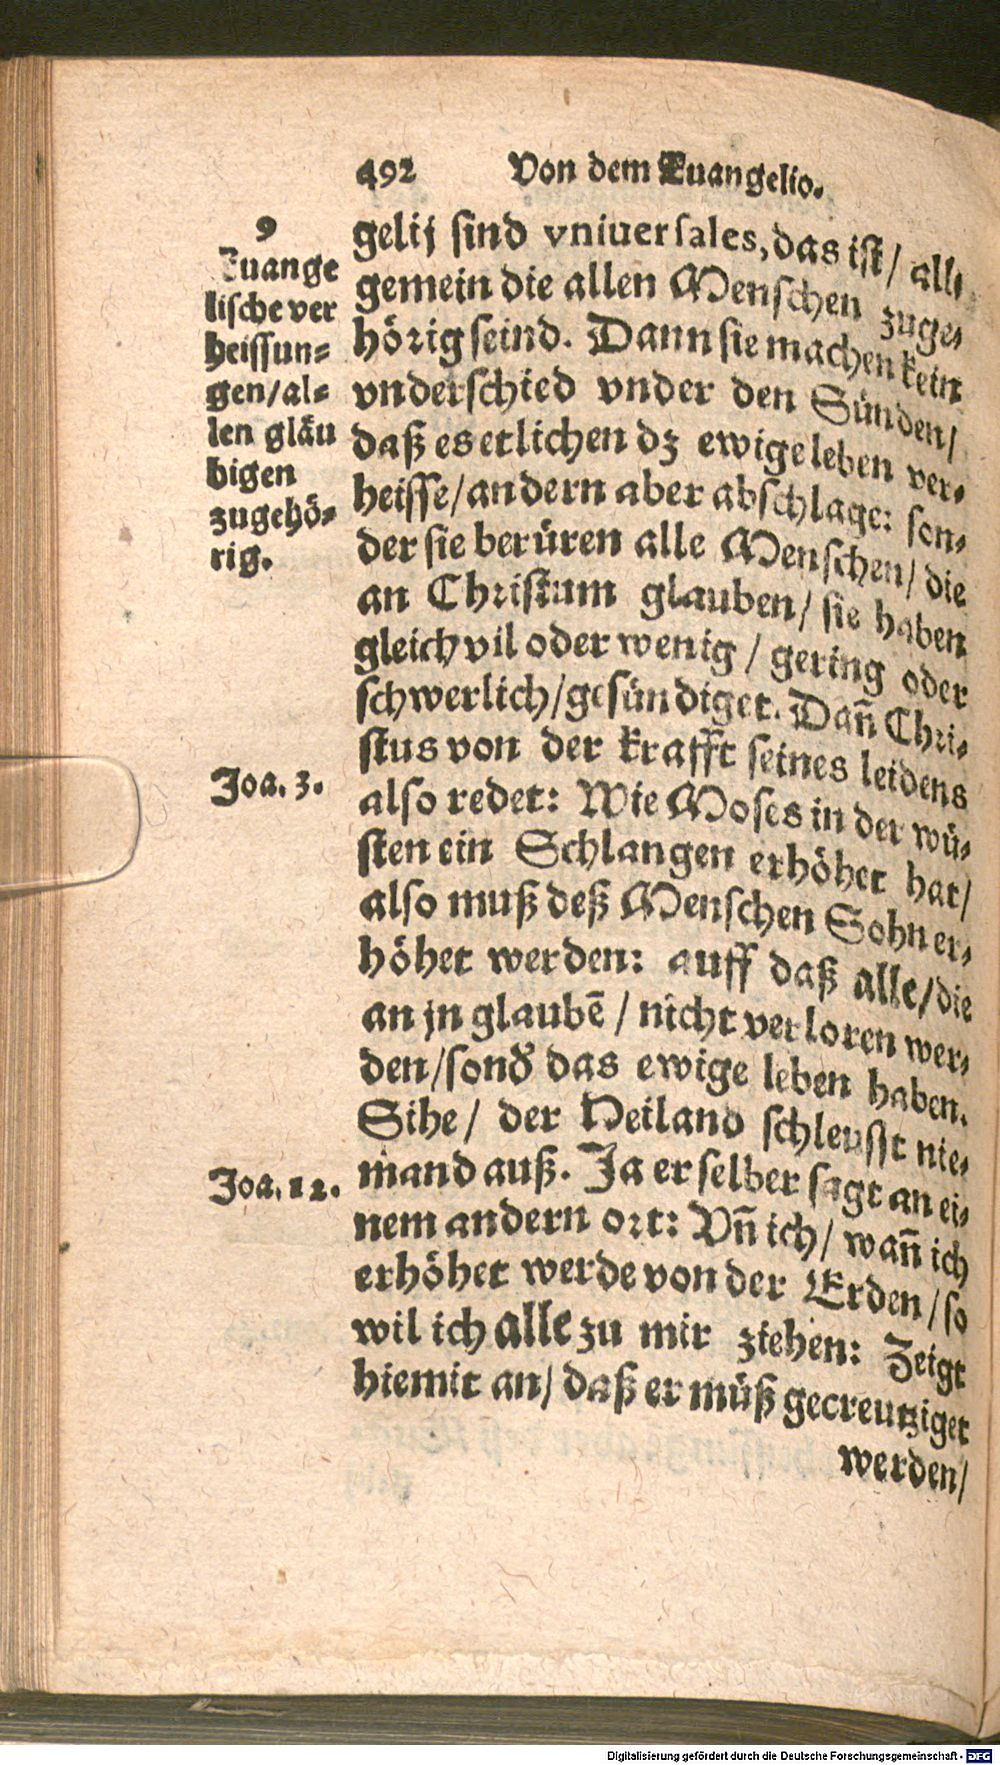 492 Von dem Euangelio.
9
Euange
lische ver
heissun-
gen/al-
len gläu
bigen
zugehö-
rig.
Joa. 3.
Joa. 12.
gelij sind vniuersales, das ist/ all-
gemein die allen Menschen zuge-
hörig seind. Dann sie machen kein
vnderschied vnder den Sünden/
daß es etlichen dz ewige leben ver-
heisse/andern aber abschlage: son-
der sie berüren alle Menschen/ die
an Christum glauben/ sie haben
gleich vil oder wenig / gering oder
schwerlich/gesündiget. Dañ Chri-
stus von der krafft seines leidens
also redet: Wie Moses in der wü-
sten ein Schlangen erhöhet hat/
also muß deß Menschen Sohn er-
höhet werden: auff daß alle/die
an jn glaubē / nicht verloren wer-
den/sond̃ das ewige leben haben.
Sihe/ der Heiland schleusst nie-
mand auß. Ja er selber sagt an ei-
nem andern ort: Vñ ich/ wañ ich
erhöhet werde von der Erden/so
wil ich alle zu mir ziehen: Zeigt
hiemit an/ daß er müß gecreutziget
werden/
Digitalisierung gefördert durch die Deutsche Forschungsgemeinschaft - DFG